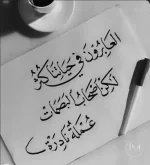 العابرون في حياتنا كثر
لكن أصحاب البصمات
عملة نادرة